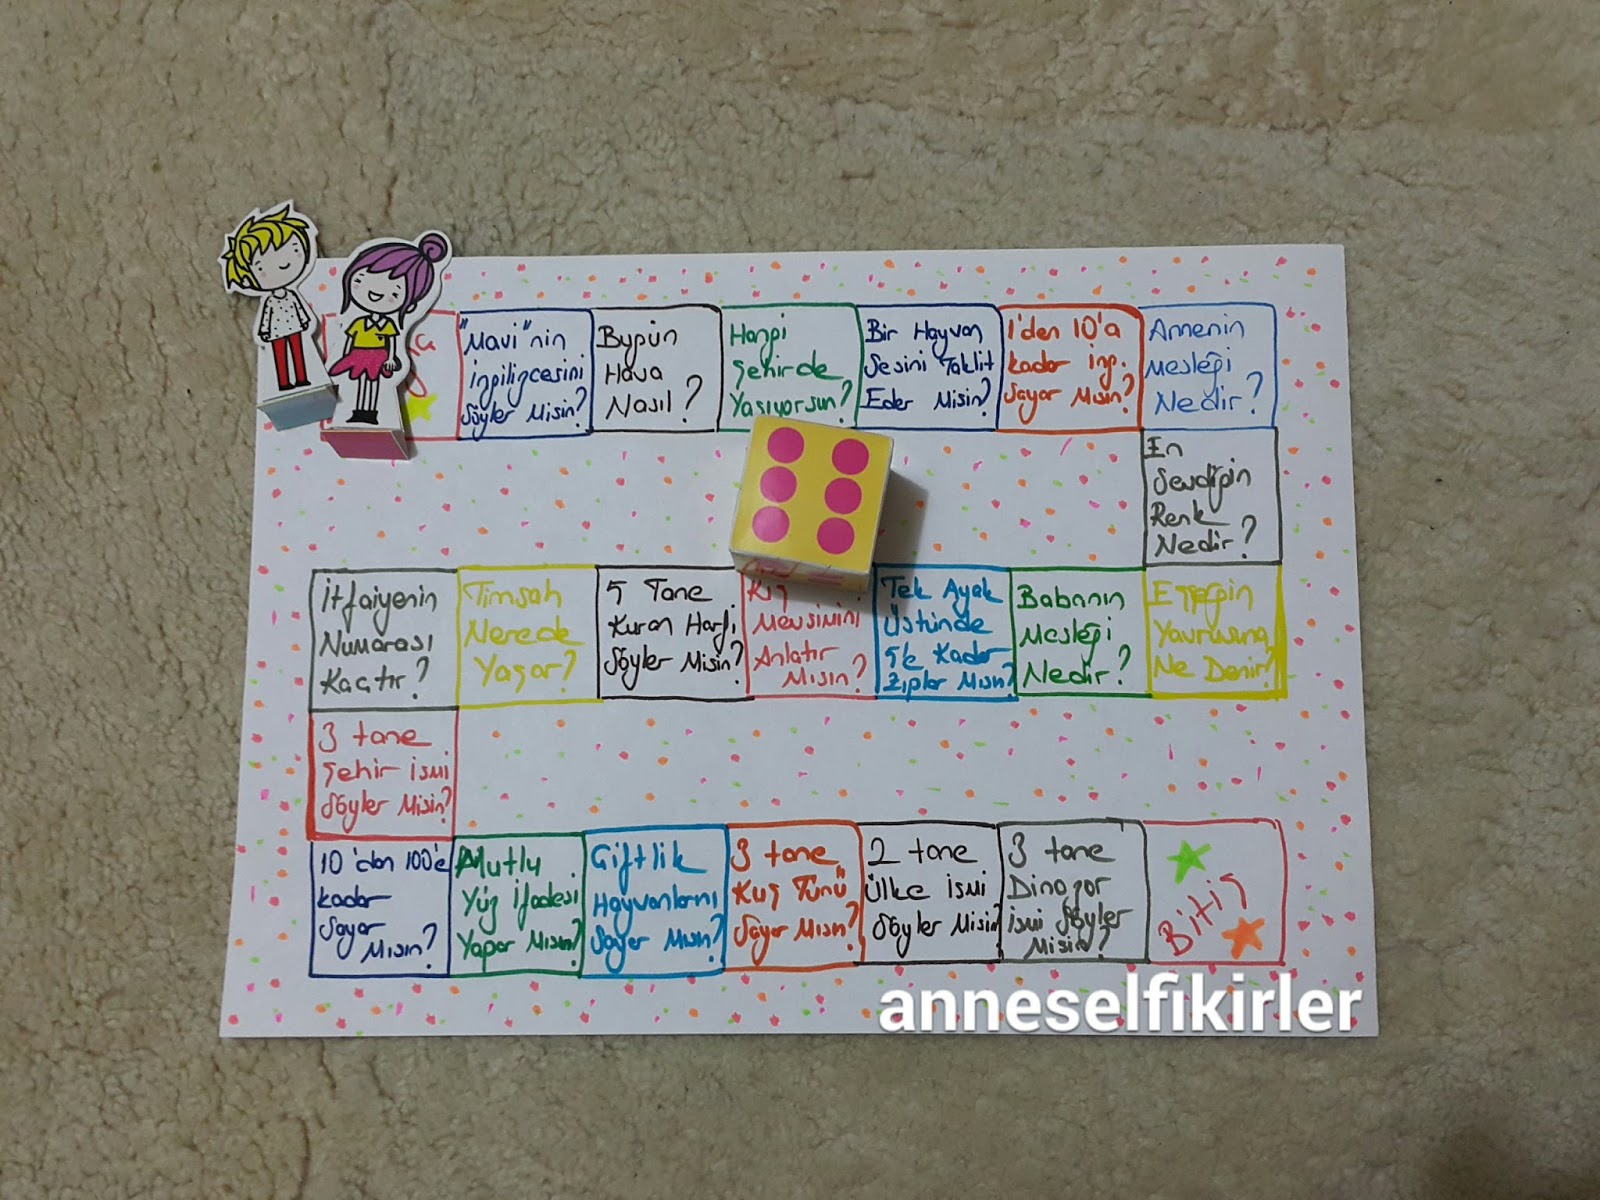 "Mavi"nin
İngilizcesini
Söyler Misin?
Bugün
Hava
Nasıl?
Hangi
Şehirde
Yaşıyorsun?
Bir Hayvan
Sesini Taklit
Eder Misin?
1'den 10'a
kadar ing.
Sayar Mısın?
Annenin
Mesleği
Nedir?
En
Sevdiğin
Renk
Nedir?
Eşeğin
Yavrusuna
Ne Denir?
Babanın
Mesleği
Nedir?
Tek Ayak
Üstünde
5'e Kadar
Zıplar Mısın?
Kış
Mevsimini
Anlatır
Mısın?
5 Tane
Kuran Harfi
Söyler Misin?
Timsah
Nerede
Yaşar?
İtfaiyenin
Numarası
Kaçtır?
3 tane
Şehir ismi
Söyler Misin?
10'dan 100'e
kadar
Sayar
Mısın?
Mutlu
Yüz İfadesi
Yapar Mısın?
Çiftlik
Hayvanlarını
Sayar Mısın?
3 tane
Kuş Türü
Sayar Mısın?
2 tane
Ülke İsmi
Söyler Misin?
3 tane
Dinozor
ismi Söyler
Misin?
Bitiş
anneselfikirler